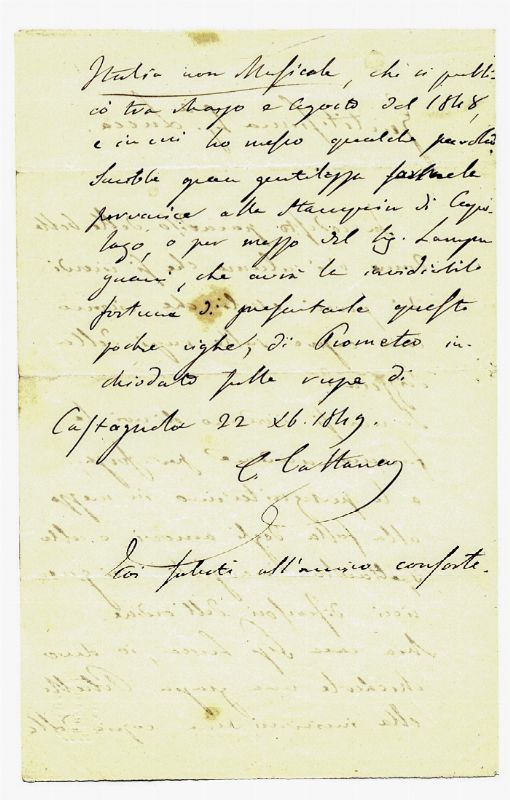 Italia non Musicale, che si pubbli-
cò tra Marzo e Agosto del 1848,
e in cui ho messo qualche parola.
Sarebbe gran gentilezza farmela
pervenire alla Stamperia di Capo-
lago, o per mezzo del Sig. Lampu-
gnani, che avrà la invidiabile
fortuna di presentarle queste
poche righe, di Prometeo in-
chiodato sulla rupe di
Castagnola 22 Xb. 1849.
C. Cattaneo
saluti all'amico conforte.